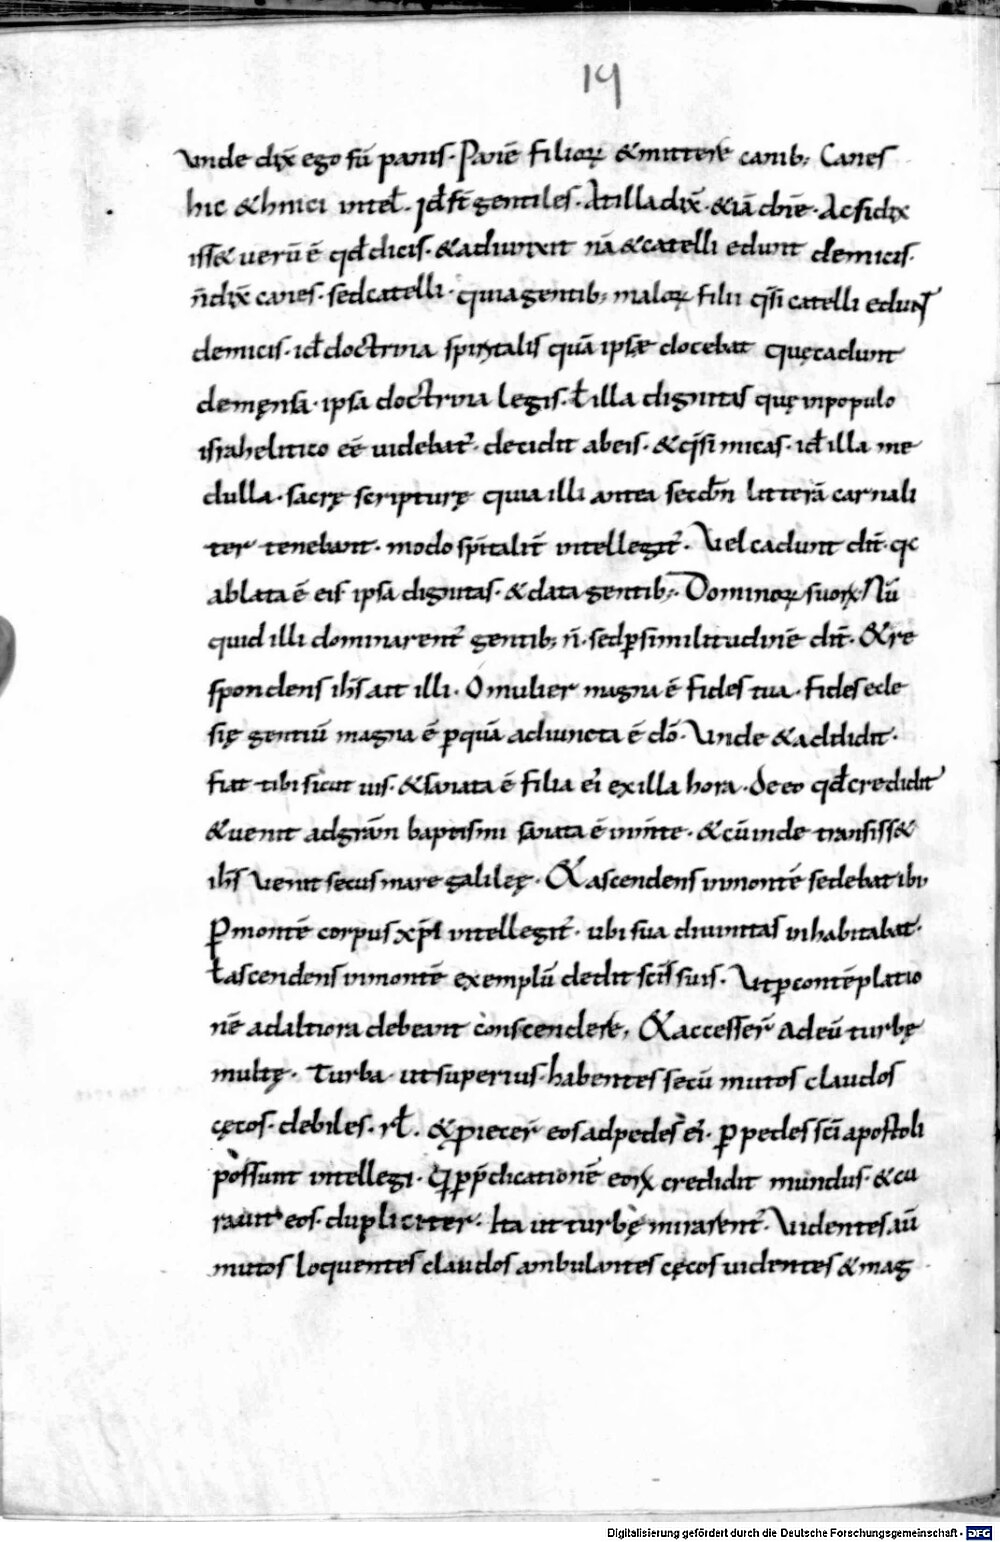 19
Vnde dix̄ ego sū panis. Panē filioꝝ & mittere canib; Canes
hic & hinici intel̄t. Id ē gentiles. At illa dix̄. &iā dn̄e. Ac si dix
iss& uerū ē qđ dicis. & adiunxit nā & catelli edunt demicis.
n̄ dix̄ canes. sed catelli. quia gentib; maloꝝ filii q̄si catelli edunt
demicis. id doctrina spiritalis quā ipsæ docebat quę cadunt
demęnsa. ipsa doctrina legis. ł illa dignitas quę inpopulo
israhelitico eē uidebat̄. decidit abeis. & q̄si micas. id illa me
dulla. sacrę scripturę quia illi antea secdm̄ litterā carnali
ter tenebant. modo sp̄italit̄ intellegit̄. Vel cadunt dit̄. q̄
ablata ē eis ipsa dignitas. & data gentib;. Dominoꝝ suoꝝ Nū
quid illi dominarent̄ gentib; n̄. sed ꝑ similitudinē dit̄. & re
spondens ihs̄ ait illi. O mulier magna ē fides tua. fides ecle
się gentiū magna ē ꝑ quā adiuncta ē dō. Vnde & addidit.
fiat tibi sicut uis. & sanata ē filia ei' exilla hora. De eo qđ credidit
& uenit adgrām baptismi sanata ē inmte. & cū inde transiss&
ihs̄ venit secus mare galileę. & ascendens inmontē sedebat ibi
ꝑ montē corpus xp̄i intellegit̄. ubi sua diuinitas inhabitabat.
ł ascendens inmontē exemplū dedit scīs suis. Vt ꝑ contēplatio
nē adaltiora debeant conscendere, & accesser̄ adeū turbę
multę. Turba. ut superius. habentes secū mutos claudos
cęcos. debiles. rł. & ꝓiecer̄ eos adpedes ei'. ꝑ pedes scī apostoli
possunt intellegi. Q ꝑ p̄dicationē eoꝝ credidit mundus. & cu
rauit eos. dupliciter. Ita ut turbę mirarent̄. Videntes. aū
mutos loquentes claudos ambulantes cęcos uidentes & mag
Digitalisierung gefördert durch die Deutsche Forschungsgemeinschaft - DFG